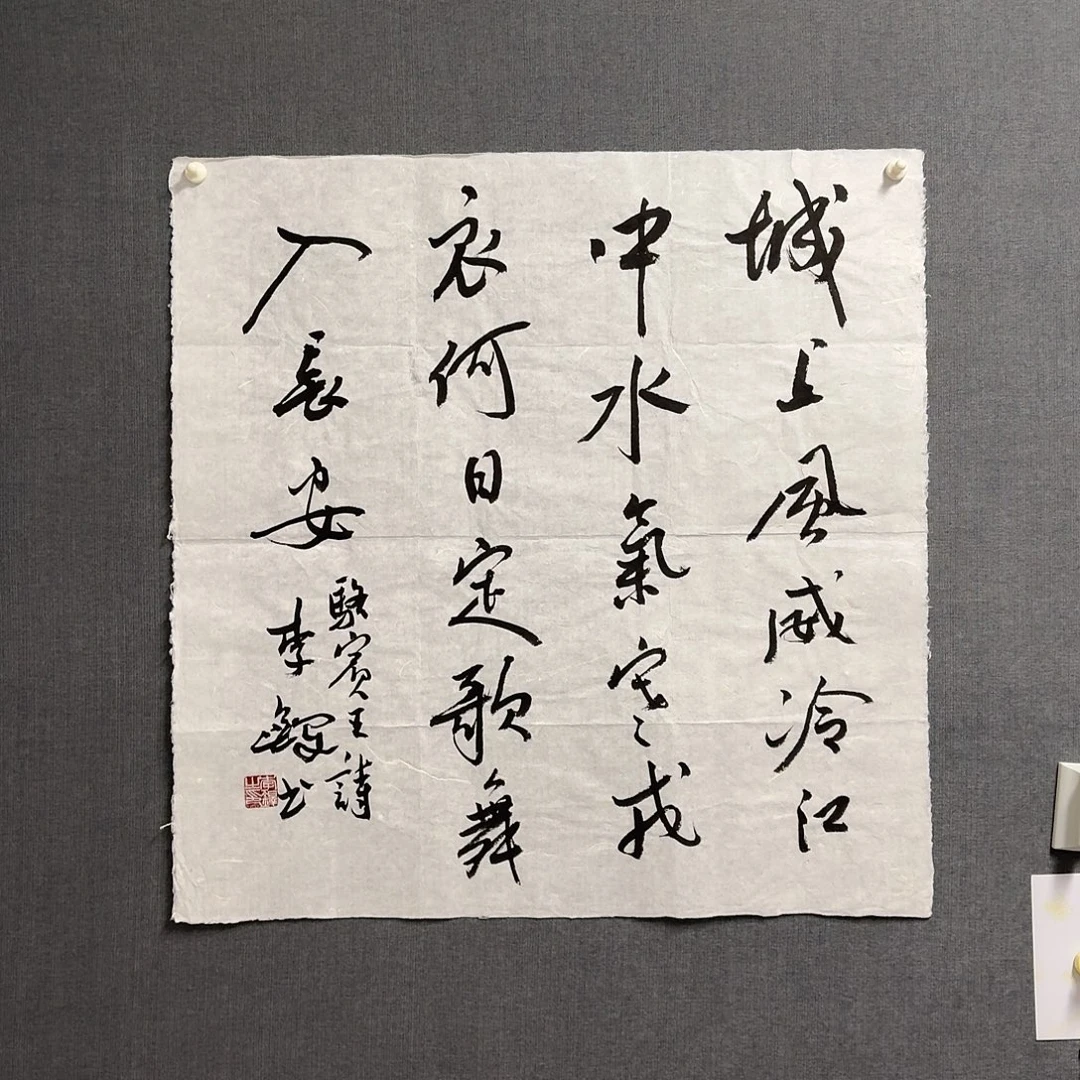 城上風威冷江
中水氣寒戎
衣何日定歌舞
入長安
駱賓王詩
李鐸书